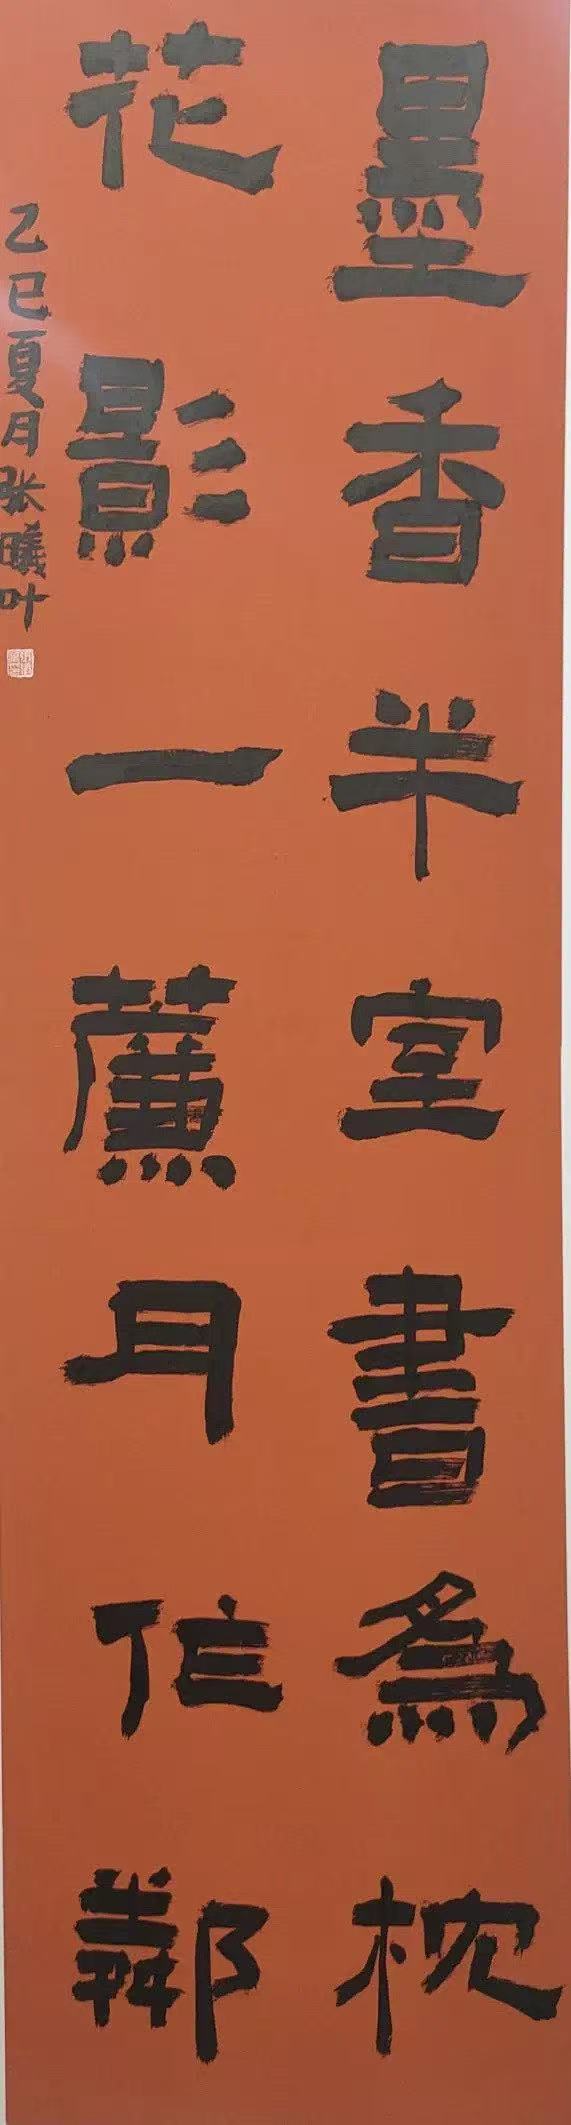 墨香半室書為枕
花影一薕月作鄰
乙巳夏月张曦叶